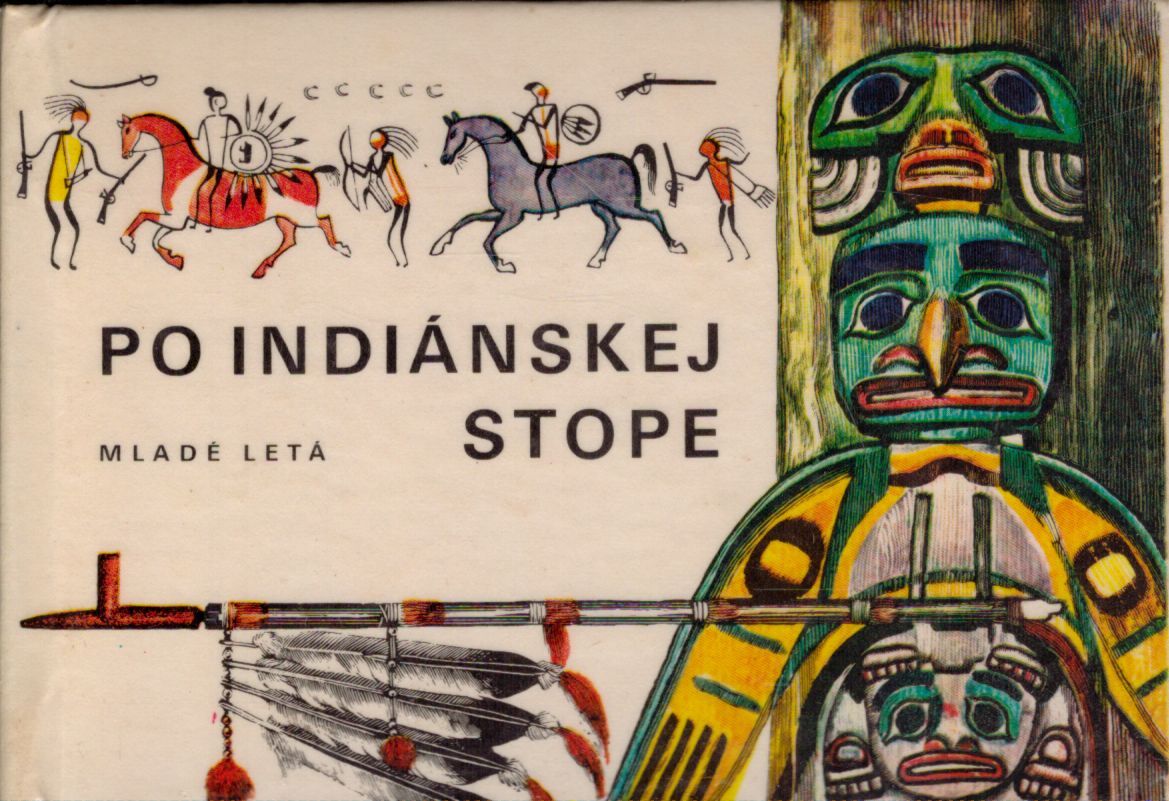 PO INDIÁNSKEJ
STOPE
MLADÉ LETÁ